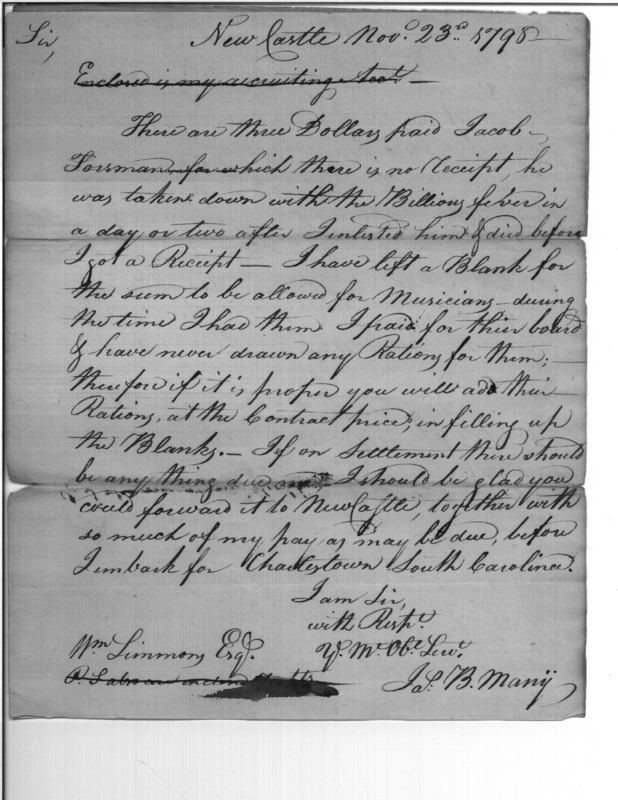 Sir,
New Castle Nov.o 23.d 1798
Enclosed is my recruiting Acct.
There are three Dollars paid Jacob
Forsman, for which there is no Receipt, he
was taken down with the Billious fever in
a day or two after I inlisted him & died before
I got a Receipt — I have left a Blank for
the sum to be allowed for Musicians — during
the time I had them I paid for thier board
& have never drawn any Rations for them;
therefore if it is proper you will add thier
Rations, at the Contract price, in filling up
the Blanks. — If on Settlement there should
be any thing due me I should be glad you
could forward it to New Castle, together with
so much of my pay as may be due, before
I imbark for Charlestown South Carolina.
I am Sir,
with Respt.
Wm Simmons Esqr. Y. Mt. Obt. Servt.
Jas. B. Many